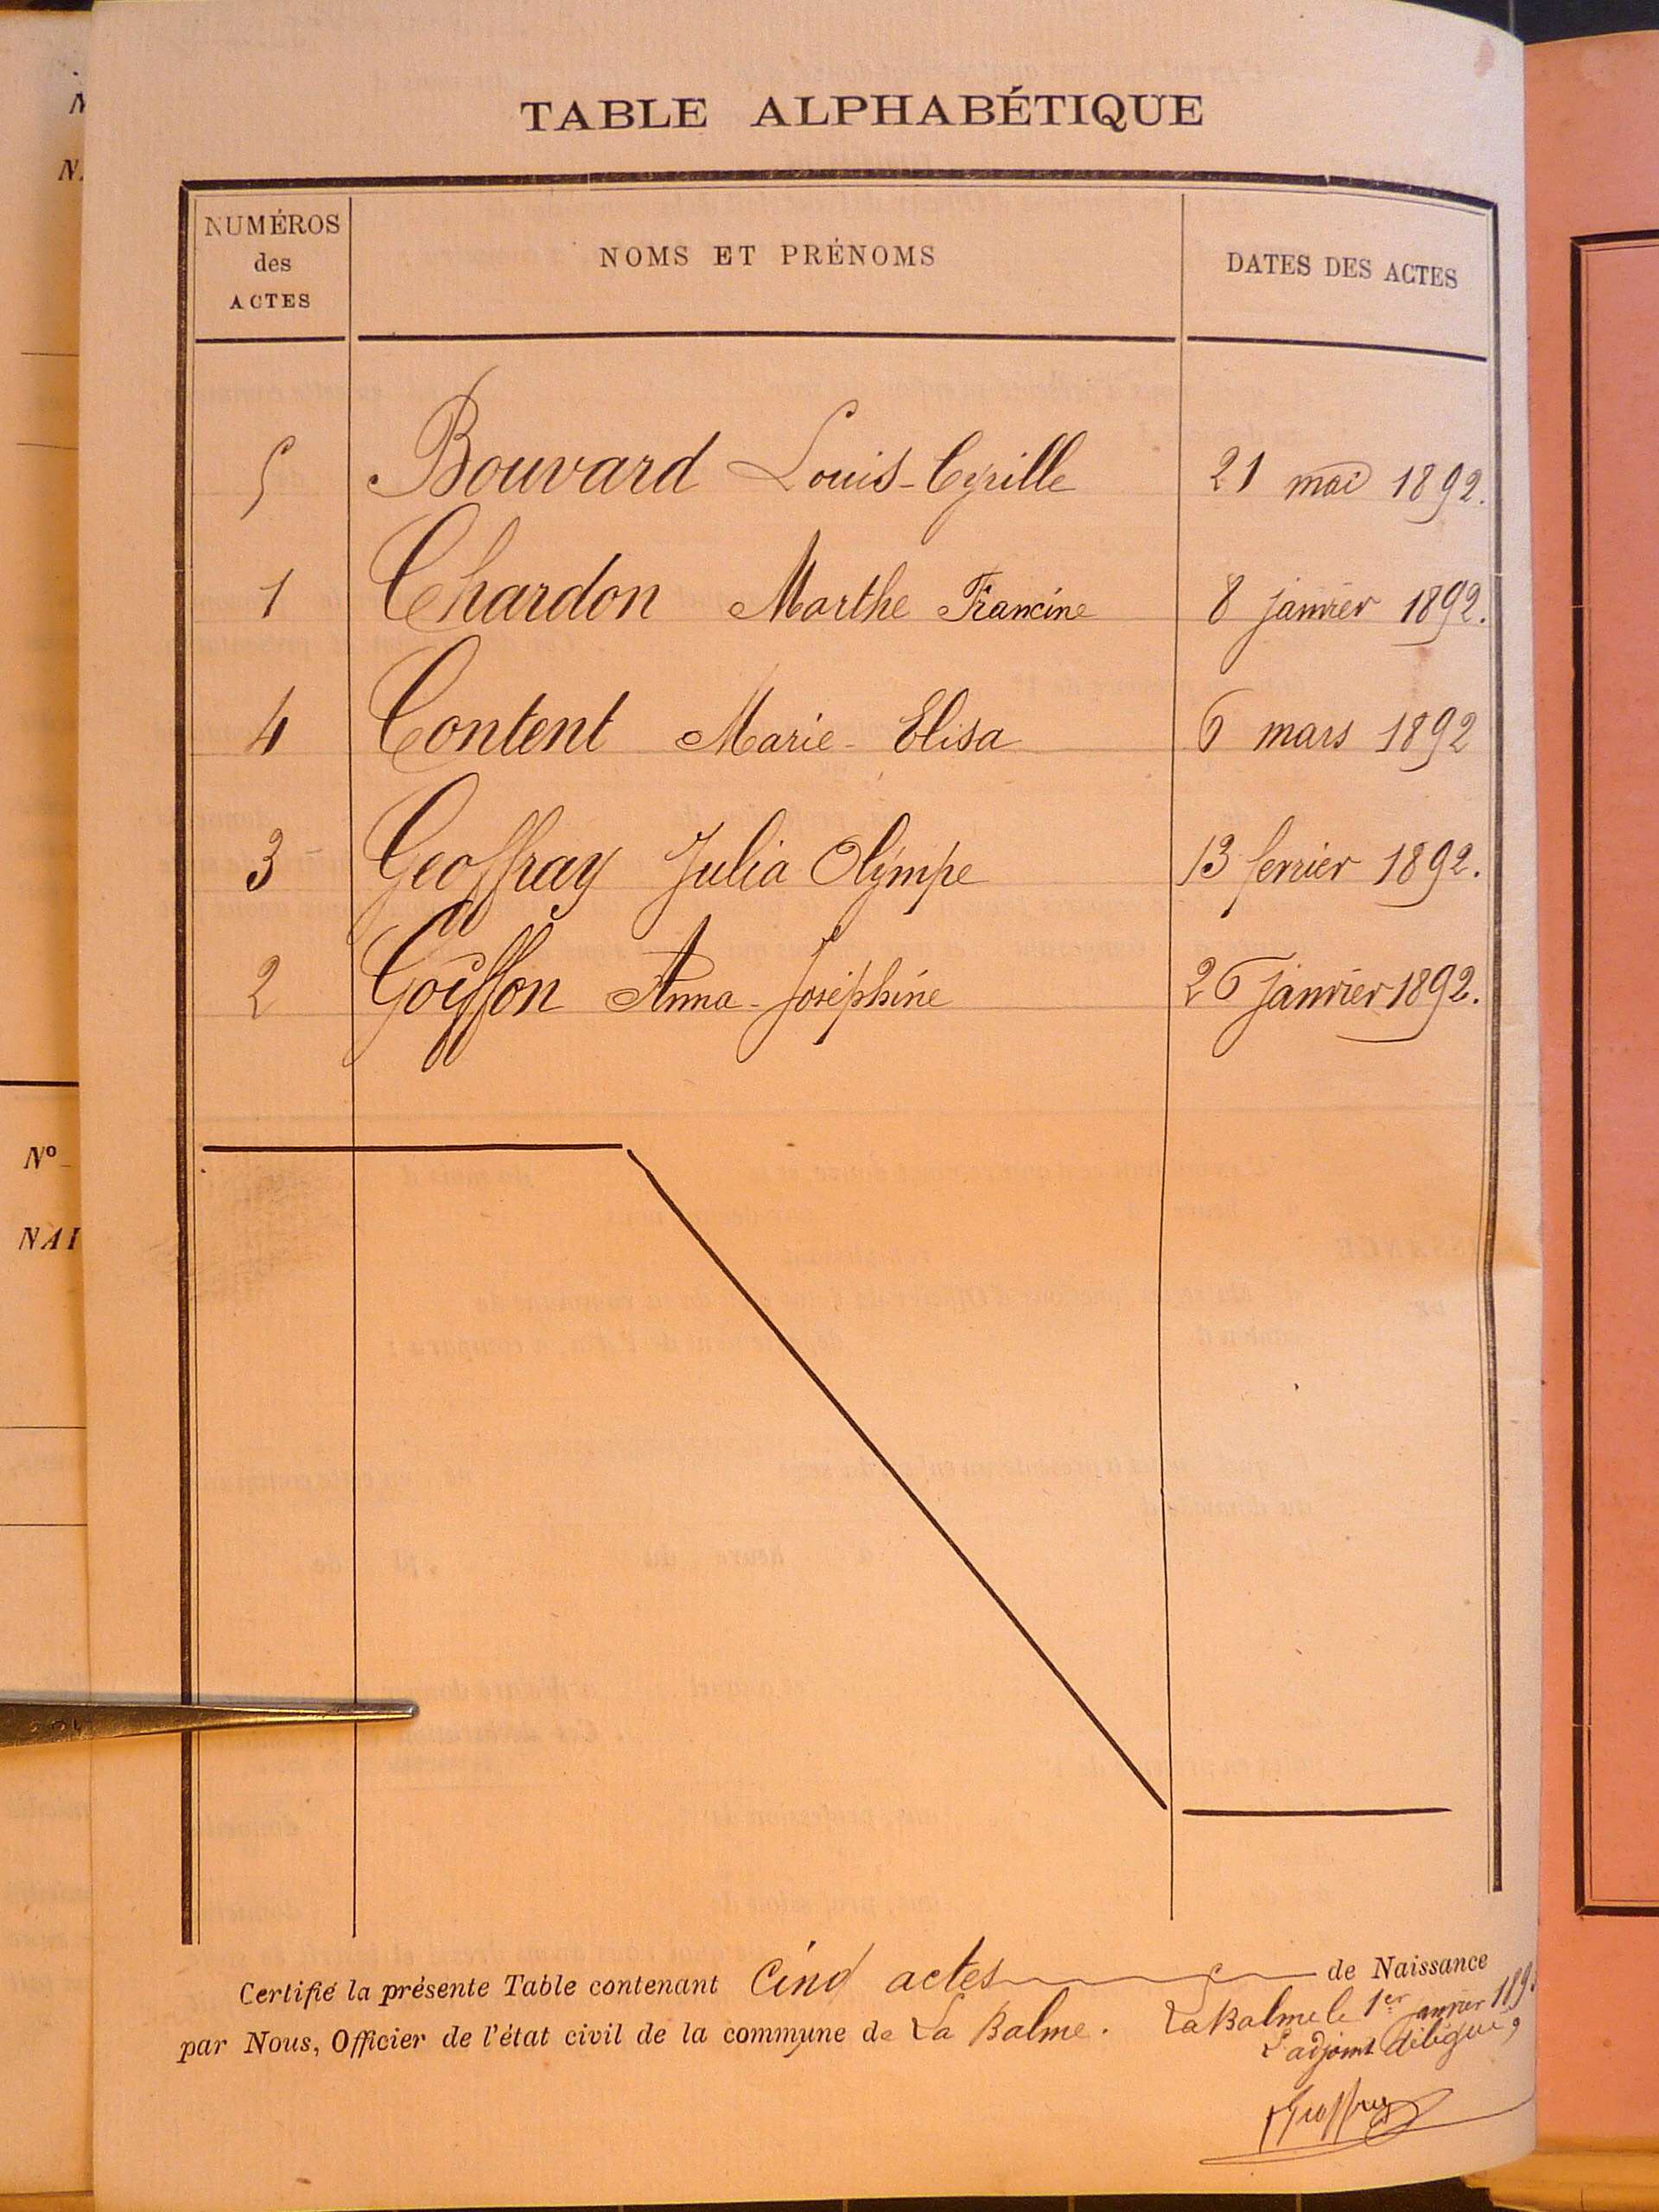 TABLE ALPHABÉTIQUE
NUMÉROS des ACTES NOMS ET PRÉNOMS DATES DES ACTES
5 Bouvard Louis-Cyrille 21 mai 1892.
1 Chardon Marthe Francine 8 janvier 1892.
4 Content Marie-Elisa 6 mars 1892
3 Geoffray Julia Olympe 13 fevrier 1892.
2 Goiffon Anna-Joséphine 26 janvier 1892.
Certifié la présente Table contenant Cinq actes de Naissance
par Nous, Officier de l'état civil de la commune de La Balme.
La Balme le 1er janvier 189
L'adjoint délégué,
Geoffray
Nº
NAI